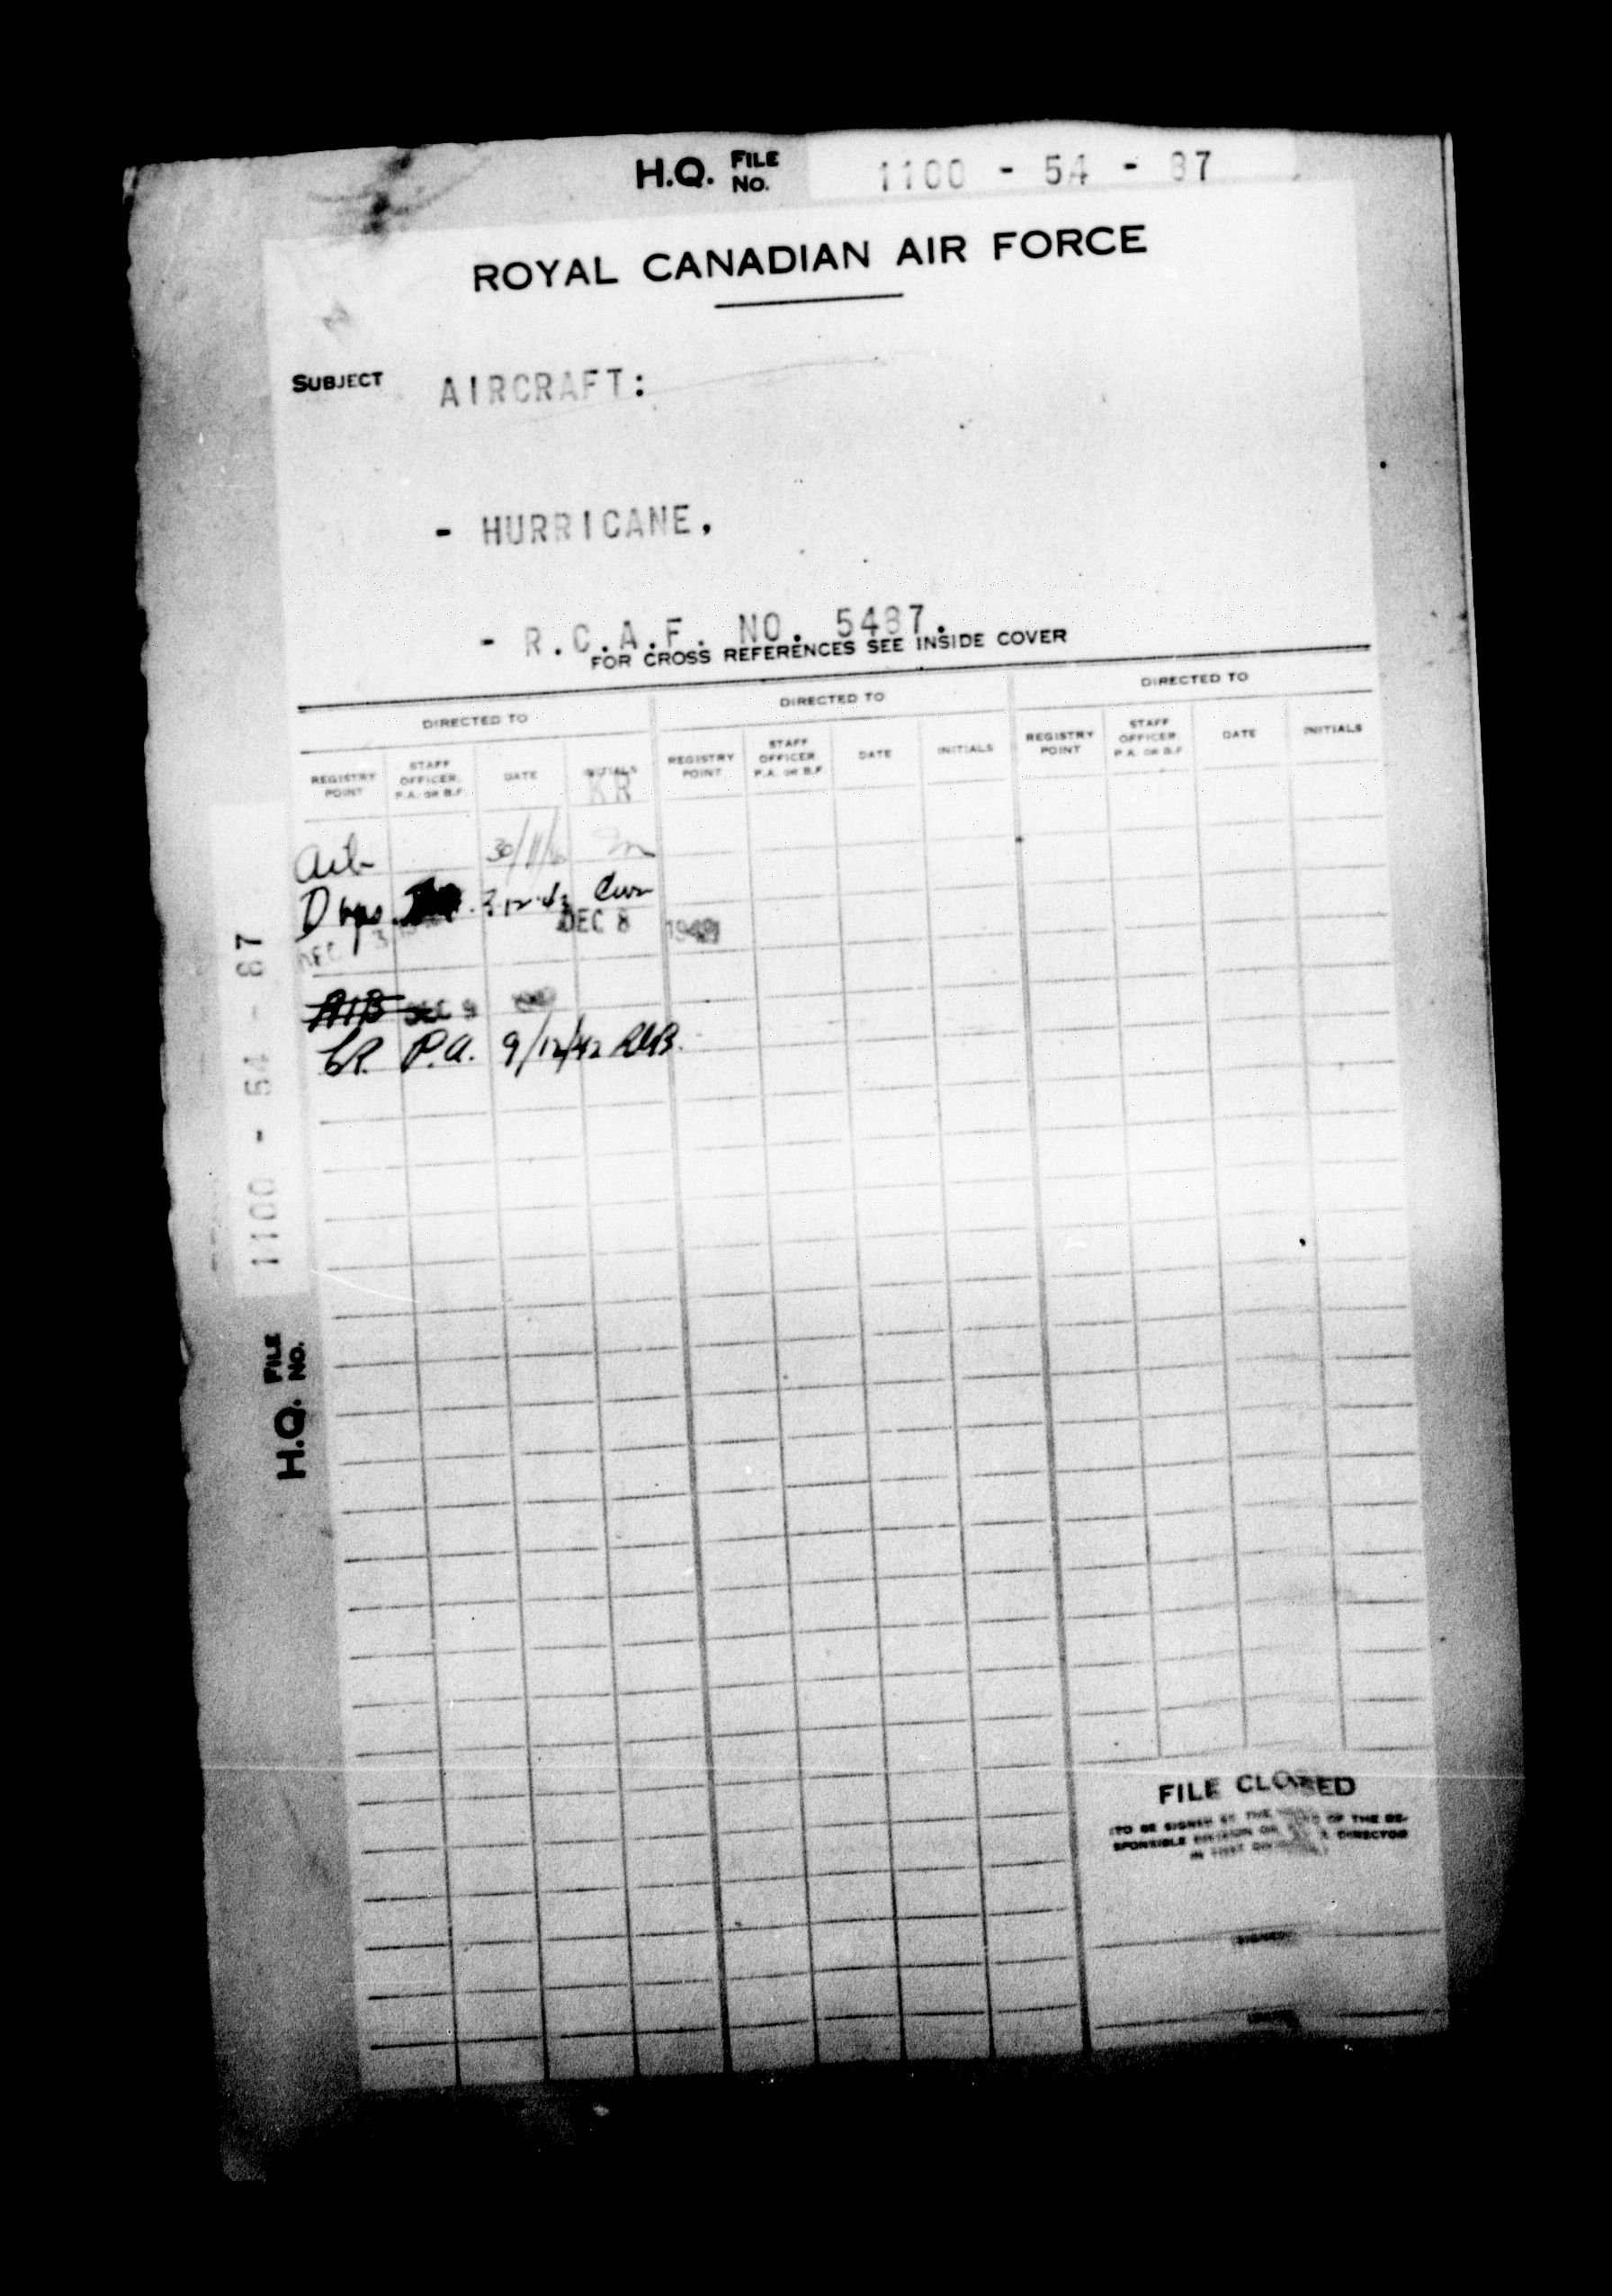 H.Q. FILE NO. 1100 - 54 - 87
ROYAL CANADIAN AIR FORCE
SUBJECT AIRCRAFT:
- HURRICANE.
- R.C.A.F. NO. 5487.
FOR CROSS REFERENCES SEE INSIDE COVER
DIRECTED TO DIRECTED TO DIRECTED TO
REGISTRY POINT STAFF OFFICER P.A. OR B.F. DATE INITIALS REGISTRY POINT STAFF OFFICER P.A. OR B.F. DATE INITIALS REGISTRY POINT STAFF OFFICER P.A. OR B.F. DATE INITIALS
KR
30/11/
DEC 8
DEC 3
AIB DEC 9
P.A. 9/12/42
H.Q. FILE NO. 1100 - 54 - 87
FILE CLOSED
(TO BE SIGNED BY THE OF THE RE-
SPONSIBLE DIVISION OR DIRECTOR
IN FIRST
SIGNED